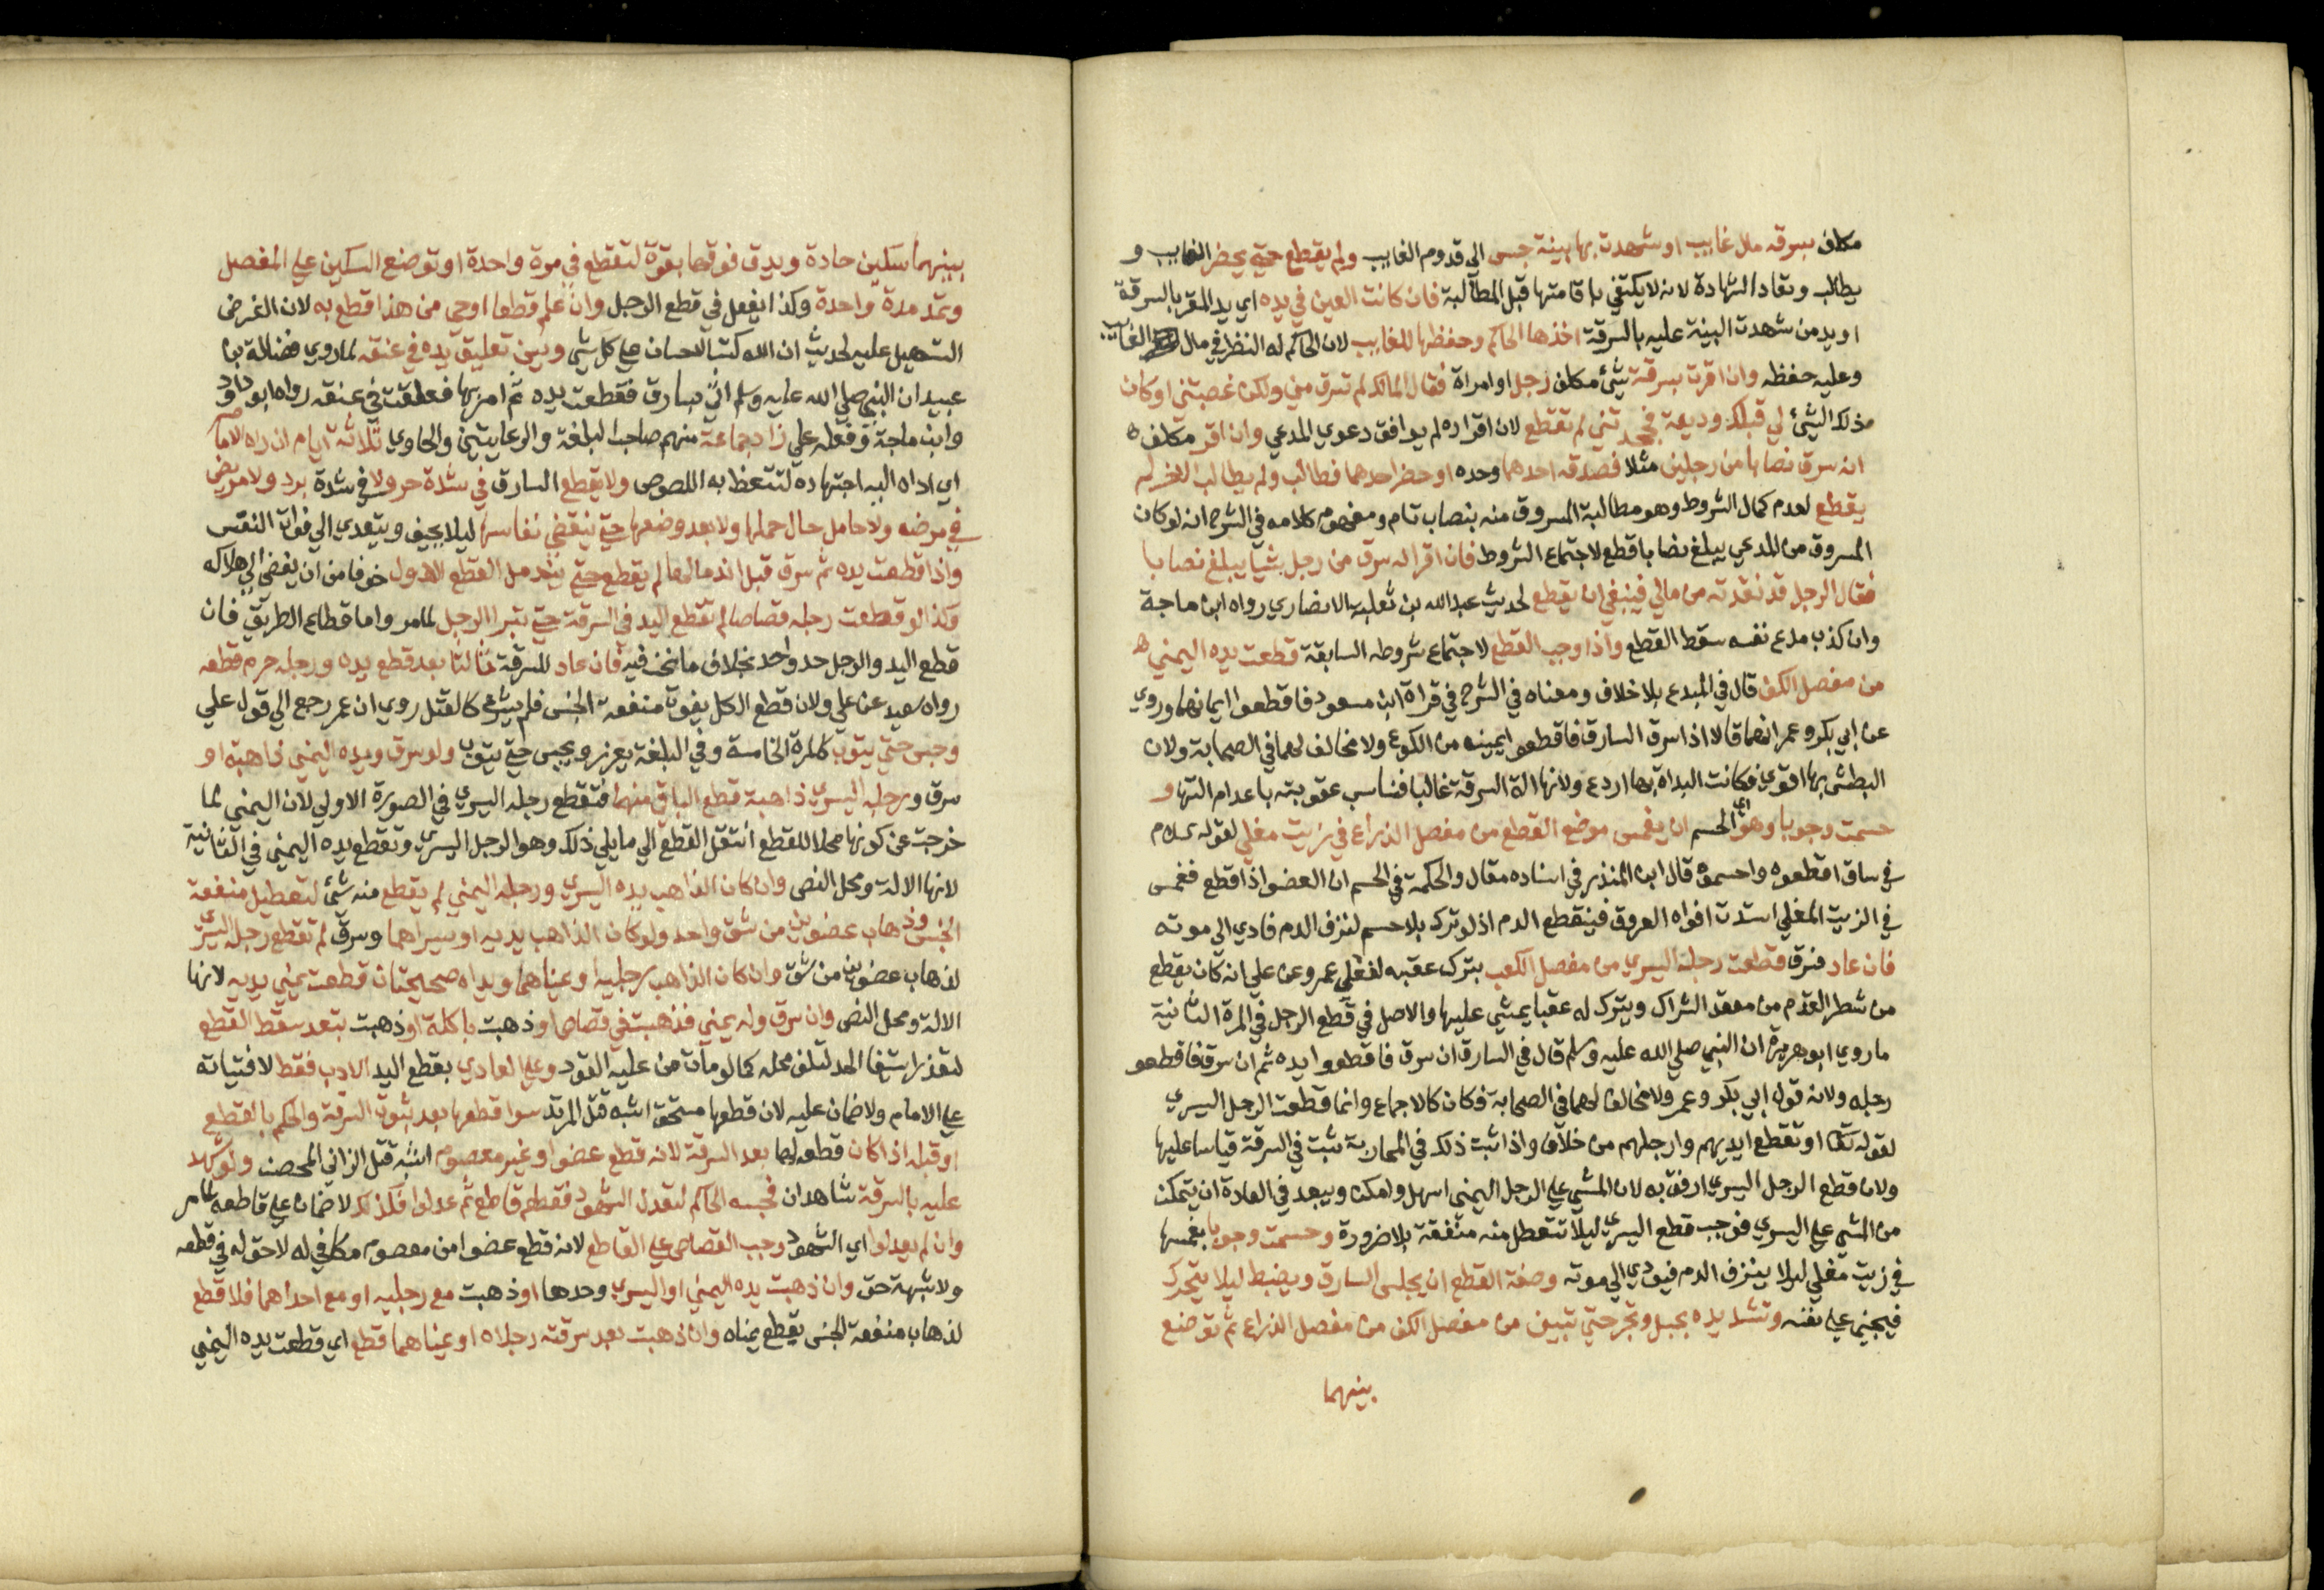 مكلف بسرقة مال غايب او شهدت بها بينة حبس الي قدوم الغايب ولم يقطع حتي يحضر الغايب و
يطالب وتعاد الشهادة لانه لا يكتفي باقامتها قبل المطالبة فان كانت العين في يده اي يد المقر بالسرقة
او يد من شهدت البينة عليه بالسرقة اخذها الحاكم وحفظها للغايب لان الحاكم له النظر في مال الغايب
وعليه حفظه وان اقرت بسرقة شيئ مكلف رجل او امراة فقال المالك لم تسرق مني ولكن غصبتني او كان
مذلك الشيئ لي قبلك وديعة فجحدتني لم تقطع لان اقراره لم يوافق دعوي المدعي وان اقر مكلف
انه سرق نصابا من رجلين مثلا فصدقه احدهما وحده او حضر احدهما فطالب ولم يطالب الاخر لم
يقطع لعدم كمال الشروط وهو مطالبة المسروق منه بنصاب تام ومفهوم كلامه في الشرح انه لو كان
المسروق من المدعي يبلغ نصابا قطع لاجتماع الشروط فان اقر انه سرق من رجل شيا يبلغ نصابا
فقال الرجل قد فقدته من مالي فينبغي ان يقطع لحديث عبدالله بن ثعلبة الانصاري رواه ابن ماجة
وان كذب مدع نفسه سقط القطع واذا وجب القطع لاجتماع شروطه السابقة قطعت يده اليمني
من مفصل الكف قال في المبدع بلا خلاف ومعناه في الشرح في قراة ابن مسعود فاقطعوا ايمانهما وروي
عن ابي بكر وعمر انهما قالا اذا سرق السارق فاقطعوا يمينه من الكوع ولا مخالف لهما في الصحابة ولان
البطش بها اقوي فكانت البداة بها اردع ولانها الة السرقة غالبا فناسب عقوبته باعدام التها و
حسمت وجوبا وهو اي الحسم ان يغمس موضع القطع من مفصل الذراع في زيت مغلي لقوله
في ساق اقطعوه واحسموه قال ابن المنذر في اسناده مقال والحكمة في الحسم ان العضو اذا قطع فغمس
في الزيت المغلي استدت افواه العروق فينقطع الدم اذ لو ترك بلا حسم لنزف الدم فادي الي موته
فان عاد فسرق قطعت رجله اليسري من مفصل الكعب بترك عقبه لفعل عمر وعن علي انه كان يقطع
من شطر القدم من معقد الشراك ويترك له عقبا يمشي عليها والاصل في قطع الرجل في المرة الثانية
ما روي ابو هريرة ان النبي صلي الله عليه وسلم قال في السارق ان سرق فاقطعوا يده ثم ان سرق فاقطعوا
رجله ولانه قول ابي بكر وعمر ولا مخالف لهما في الصحابة فكان كالاجماع وانما قطعت الرجل اليسري
لقوله تعالى او تقطع ايديهم وارجلهم من خلاف واذا ثبت ذلك في المحاربة ثبت في السرقة قياسا عليها
ولان قطع الرجل اليسري ارفق به لان المشي علي الرجل اليمني اسهل وامكن ويبعد في العادة ان يتمكن
من المشي علي اليسري فوجب قطع اليسري ليلا تتعطل منه منفعة بلا ضرورة وحسمت وجوبا بغمسها
في زيت مغلي ليلا ينزف الدم فيودي الي موته وصفة القطع ان يجلس السارق ويضبط ليلا يتحرك
فيجني علي نفسه وتشد يده بحبل وتجر حتي تتبين من مفصل الكف من مفصل الذراع ثم توضع
بينهما
بينهما سكين حادة ويدق فوقها بقوة لتقطع في مرة واحدة او توضع السكين علي المفصل
وتمد مدة واحدة وكذا يفعل في قطع الرجل وان علم قطعا اوحي من هذا قطع به لان الغرض
التسهيل عليه لحديث ان الله كتب الاحسان علي كل شي ويسن تعليق يده في عنقه لما روي فضالة بن
عبيد ان النبي صلي الله عليه وسلم اتي بسارق فقطعت يده ثم امر بها فعلقت في عنقه رواه ابو داود
وابن ماجة وفعله علي زاد جماعة منهم صاحب البلغة والرعايتين والحاوي ثلاثة ايام ان راه الامام
اي اداه اليه اجتهاده لتتعظ به اللصوص ولا يقطع السارق في شدة حر ولا في شدة برد ولا مريض
في مرضه ولا حامل حال حملها ولا بعد وضعها حتي ينقضي نفاسها ليلا يحيف ويتعدي الي فوات النفس
واذا قطعت يده ثم سرق قبل اندمالها لم يقطع حتي يندمل القطع الاول خوفا من ان يفضي الي هلاكه
وكذا لو قطعت رجله قصاصا لم تقطع اليد في السرقة حتي تبرا الرجل لما مر واما قطاع الطريق فان
قطع اليد والرجل حد واحد بخلاف ما نحن فيه فان عاد للسرقة ثالثا بعد قطع يده ورجله حرم قطعه
رواه سعيد عن علي ولان قطع الكل يفوت منفعة الجنس فلم يشرع كالقتل روي ان عمر رجع الي قول علي
وحبس حتي يتوب كالمرة الخامسة وفي البلغة يعزر ويحبس حتي يتوب ولو سرق ويده اليمني ذاهبة او
سرق ورجله اليسري ذاهبة قطع الباقي منهما فتقطع رجله اليسري في الصورة الاولي لان اليمني لما
خرجت عن كونها محلا للقطع انتقل القطع الي ما يلي ذلك وهو الرجل اليسري وتقطع يده اليمني في الثانية
لانها الالة ومحل النص وان كان الذاهب يده اليسري ورجله اليمني لم يقطع منه شئ لتعطيل منفعة
الجنس وذهاب عضوين من شق واحد ولو كان الذاهب يديه او يسراهما وسرق لم تقطع رجله اليسري
لذهاب عضوين من شق وان كان الذاهب رجليه او يمناهما ويداه صحيحتان قطعت يمني يديه لانها
الالة ومحل النص وان سرق وله يمني فذهبت في قصاص او ذهبت باكلة او ذهبت بتعد سقط القطع
لتعذر استيفا الحد لتلف محله كما لو مات من عليه القود وعلي العادي بقطع اليد الادب فقط لافتياته
علي الامام ولا ضمان عليه لان قطعها مستحق اشبه قتل المرتد سوا قطعها بعد ثبوت السرقة والحكم بالقطع
او قبله اذا كان قطعه لها بعد السرقة لانه قطع عضوا وغير معصوم اشبه قتل الزاني المحصن ولو شهد
عليه بالسرقة شاهدان فحبسه الحاكم لتعدل الشهود فقطعه قاطع ثم عدلوا فكذلك لا ضمان علي قاطعه لما مر
وان لم يعدلوا اي الشهود وجب القصاص علي القاطع لانه قطع عضوا من معصوم مكافي له لا حق له في قطعه
ولا شبهة حق وان ذهبت يده اليمني او اليسري وحدها او ذهبت مع رجليه او مع احداهما فلا قطع
لذهاب منفعة الجنس بقطع يمناه وان ذهبت بعد سرقته رجلاه او يمناهما قطع اي قطعت يده اليمني